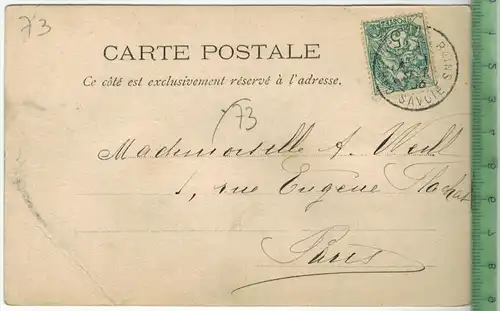 73
CARTE POSTALE
Ce côté est exclusivement réservé à l'adresse.
BAINS
SAVOIE
73
Mademoiselle A. Weill
1, rue Eugène Flachat
Paris